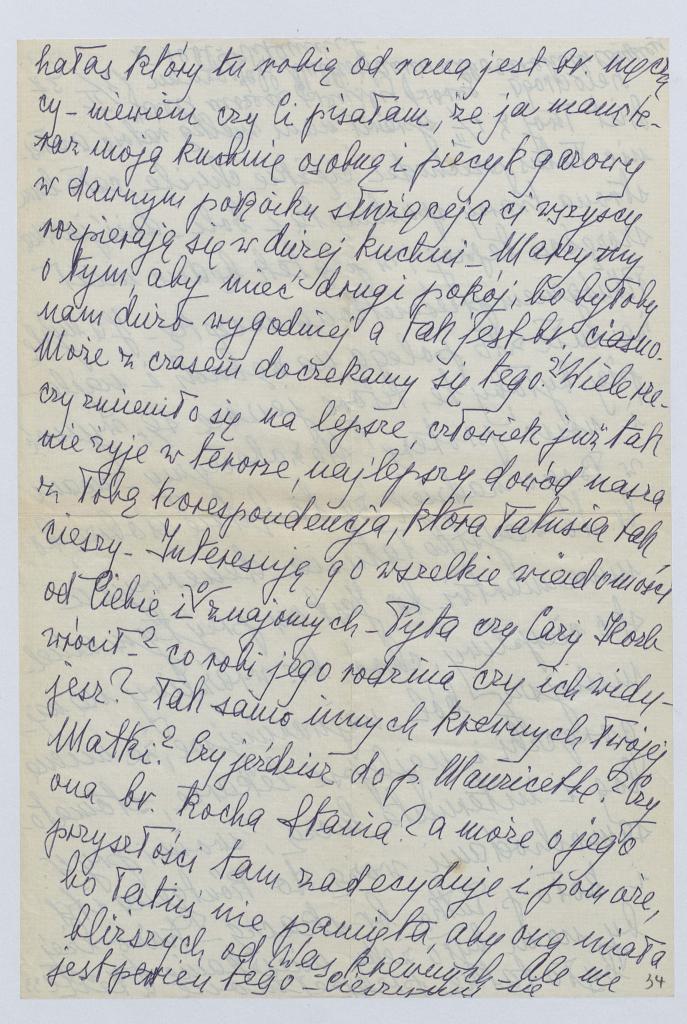 hałas który tu robią od rana jest br. męczą
cy – niewiem czy Ci pisałam, że ja mam te-
raz moją kuchnię osobną i piecyk gazowy
w dawnym pokoiku służącej a ci wszyscy
rozpierają się w dużej kuchni – Marzymy
o tym, aby mieć drugi pokój, bo byłoby
nam dużo wygodniej a tak jest br. ciasno.
Może z czasem doczekamy się tego? Wiele rze-
czy zmieniło się na lepsze, człowiek już tak
nie żyje w terorze, najlepszy dowód nasza
z Tobą korespondencja, która Tatusia tak
cieszy – Interesują go wszelkie wiadomości
od Ciebie i o znajomych – Pyta czy Cary
wrócił –? co robi jego rodzina czy ich widu-
jesz? Tak samo innych krewnych Twojej
Matki? Czy jeździsz do p. Mauricette? Czy
ona br. kocha Stania? a może o jego
przyszłości tam zadecyduje i pomoże,
bo Tatuś nie pamięta, aby ona miała
bliższych od Was krewnych – Ale nie
jest pewien tego – się
34